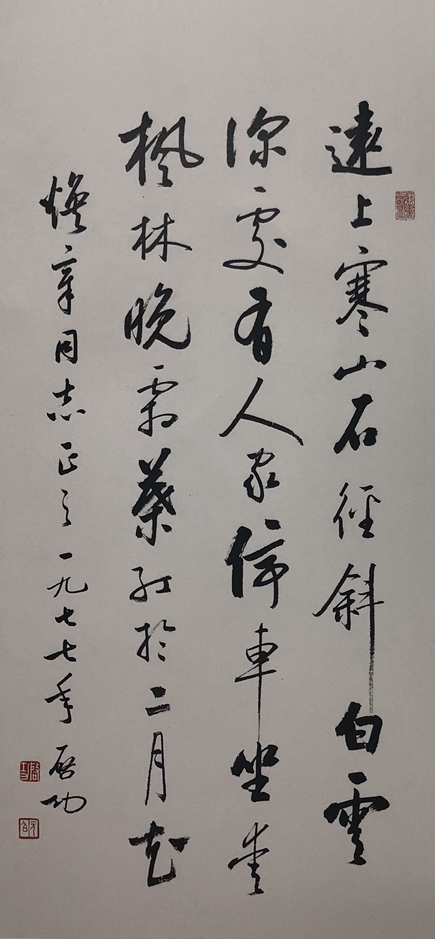 遠上寒山石徑斜白雲
深處有人家停車坐愛
楓林晚霜葉紅於二月花
煥章同志正之一九七七年啟功